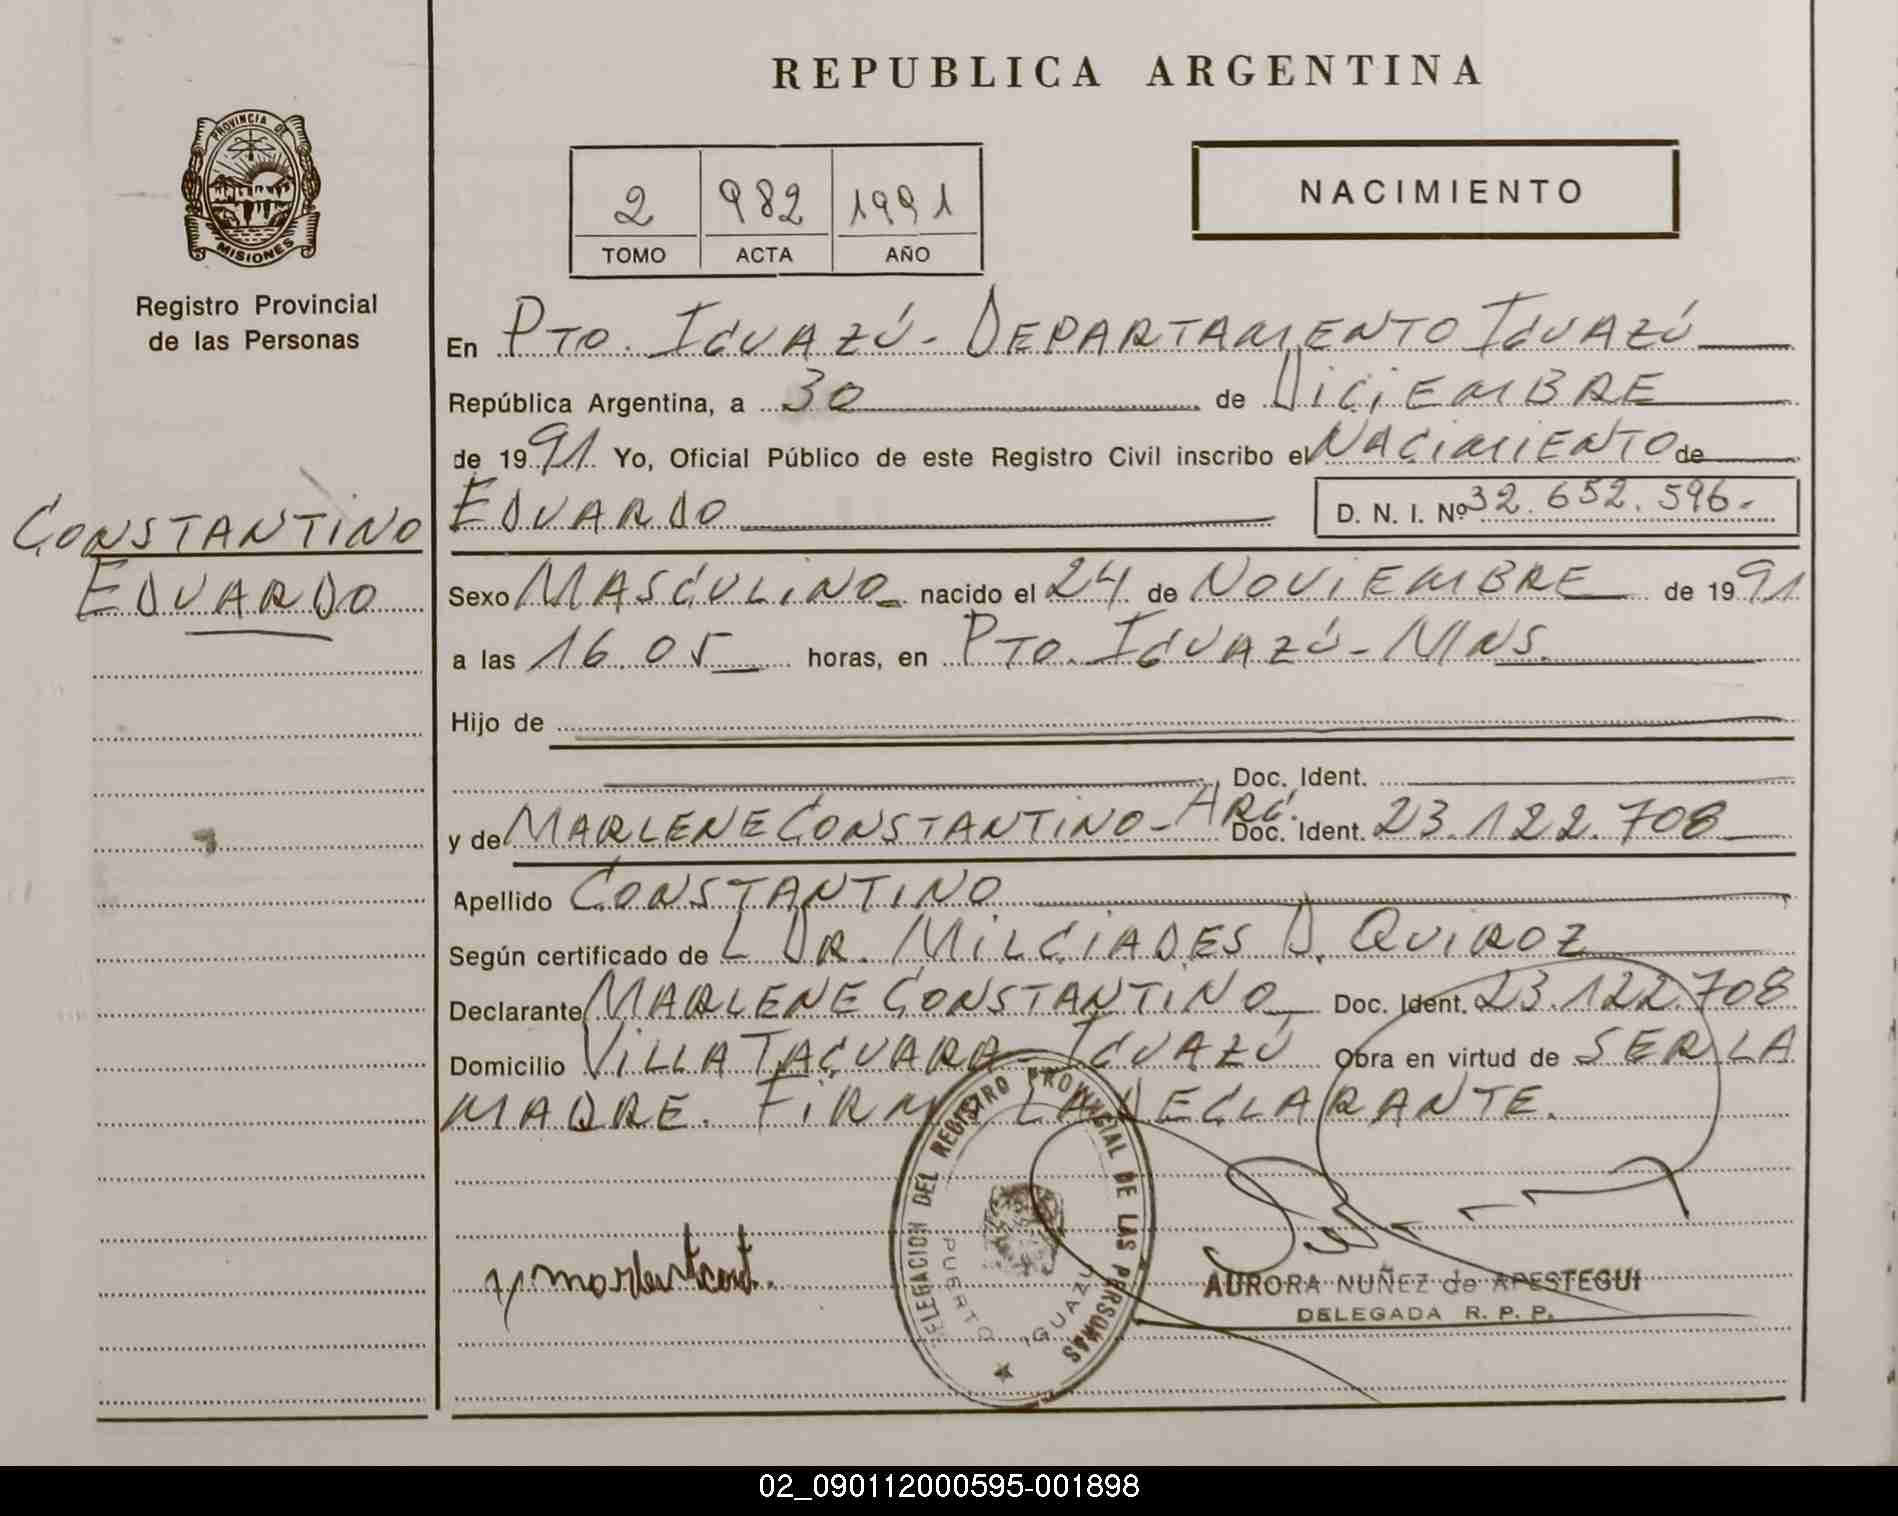 REPUBLICA ARGENTINA
PROVINCIA DE
MISIONES
Registro Provincial
de las Personas
2 982 1991
TOMO ACTA AÑO
NACIMIENTO
En PTO. IGUAZÚ - DEPARTAMENTO IGUAZÚ
República Argentina, a 30 de DICIEMBRE
de 1991 Yo, Oficial Público de este Registro Civil inscribo el NACIMIENTO de
EDUARDO D. N. I. Nº 32.652.596.-
CONSTANTINO
EDUARDO
Sexo MASCULINO nacido el 24 de NOVIEMBRE de 1991
a las 16.05 horas, en PTO. IGUAZÚ - MNS.
Hijo de
Doc. Ident.
y de MARLENE CONSTANTINO - ARG. Doc. Ident. 23.122.708
Apellido CONSTANTINO
Según certificado de L DR. MILCIADES D. QUIROZ
Declarante MARLENE CONSTANTINO Doc. Ident. 23.122.708
Domicilio VILLA TACUARA - IGUAZÚ Obra en virtud de SER LA
MADRE. FIRMA LA DECLARANTE.
DELEGACION DEL REGISTRO PROVINCIAL DE LAS PERSONAS
PUERTO IGUAZU
AURORA NUÑEZ de APESTEGUI
DELEGADA R. P. P.
02_090112000595-001898